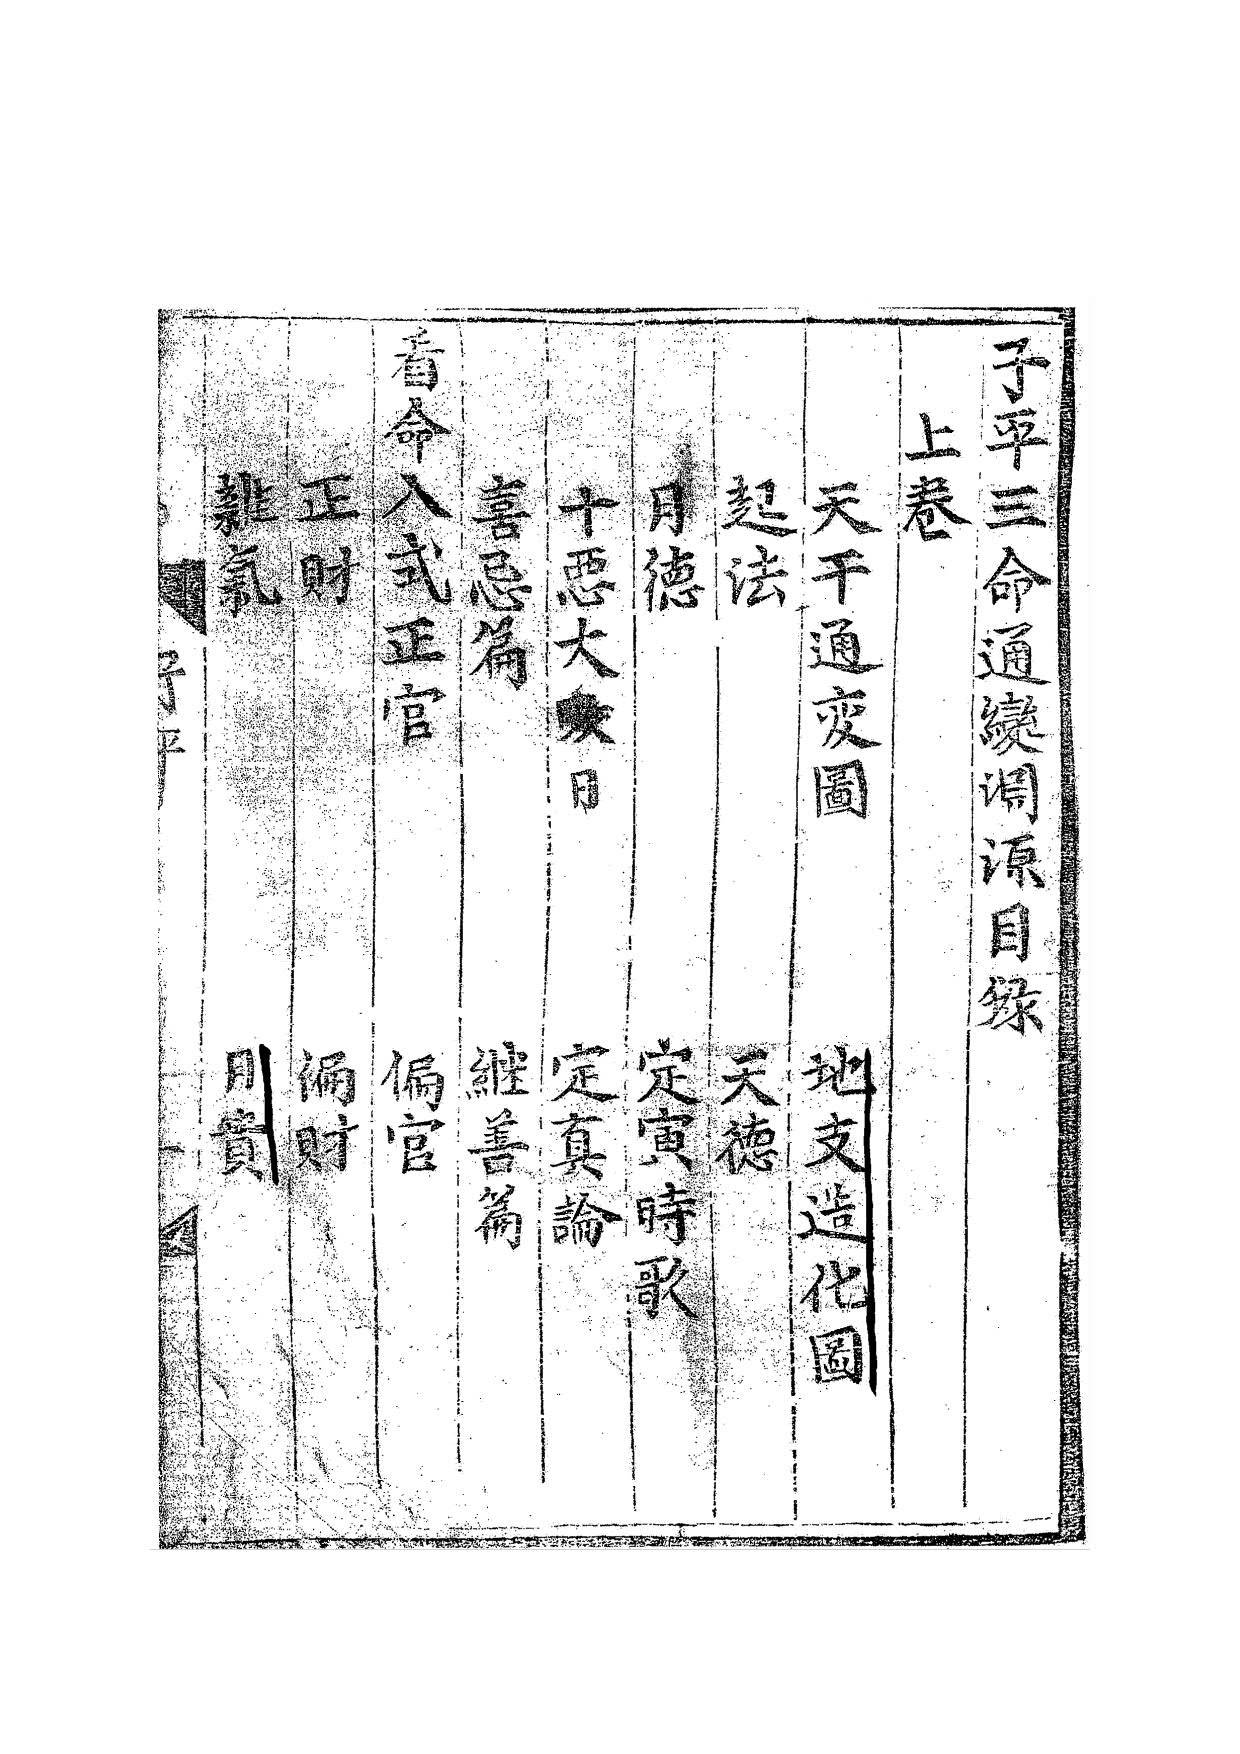 子平三命通變渊源目録
上卷
天干通变圖　地支造化圖
起法　天德
月德　定寅時歌
十惡大敗日　定真論
喜忌篇　継善篇
看命入式正官　偏官
正財　偏財
雜氣　月貴
子平